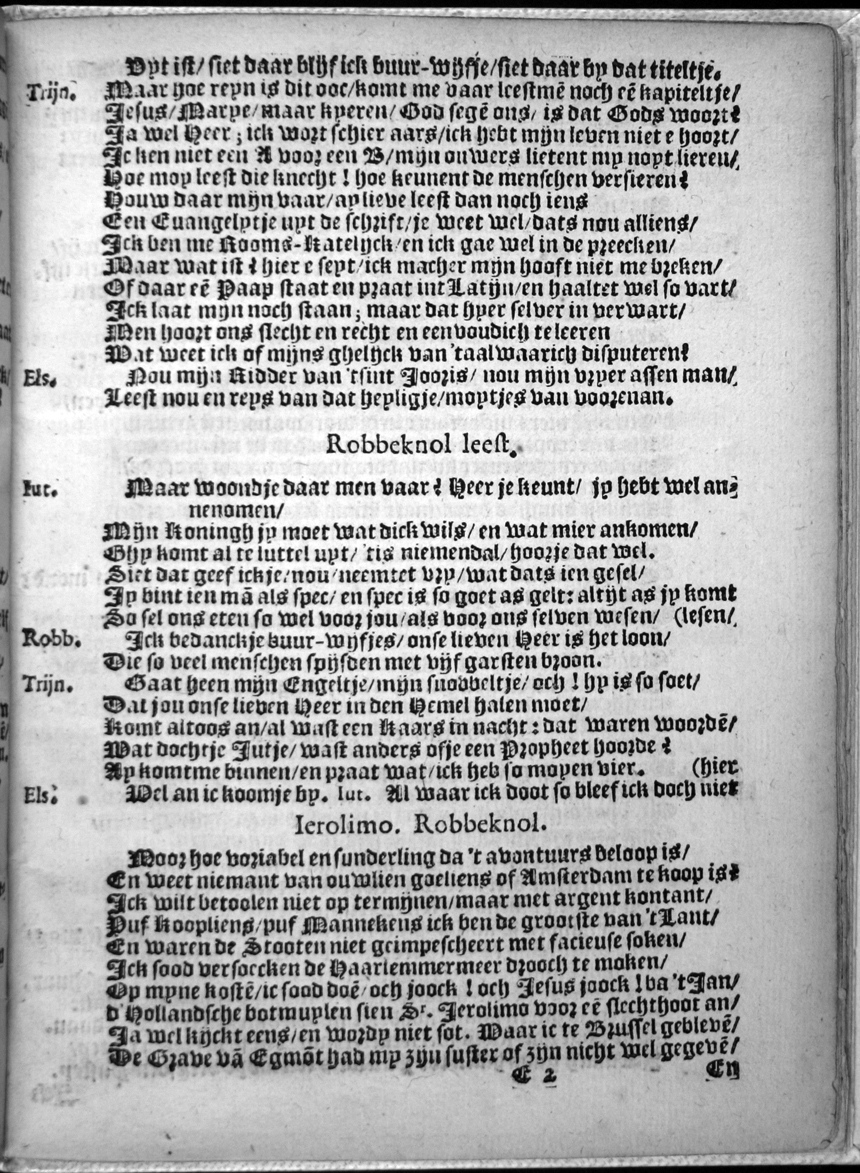 Uyt ist/ siet daar blijf ick buur-wijfje/siet daar by dat titeltje.
Trijn. Maar hoe reyn is dit ooc/komt me vaar leestmē noch eē kapiteltje/
Jesus/Marye/maar kyeren/God segē ons/ is dat Gods woort?
Ja wel Heer; ick wort schier aars/ick hebt mijn leven niet e hoort/
Jc ken niet een A voor een B/mijn ouwers lietent my noyt lieren/
Hoe moy leest die knecht! hoe keunent de menschen versieren?
Houw daar mijn vaar/ay lieve leest dan noch iens
Een Euangelytje uyt de schrift/je weet wel/dats nou alliens/
Ick ben me Rooms-Katelijck/en ick gae wel in de preecken/
Maar wat ist? hier e seyt/ick macher mijn hooft niet me breken/
Of daar eē Paap staat en praat int Latijn/en haaltet wel so vart/
Ick laat mijn noch staan; maar dat hyer selver in verwart/
Men hoort ons slecht en recht en eenvoudich te leeren
Wat weet ick of mijns ghelijck van 'taalwaarich disputeren?
Els. Nou mijn Ridder van 'tsint Jooris/ nou mijn vryer assen man/
Leest nou en reys van dat heyligje/moytjes van voorenan.
Robbeknol leest.
Iut. Maar woondje daar men vaar? Heer je keunt/ jy hebt wel an-
nenomen/
Mijn Koningh jy moet wat dickwils/en wat mier ankomen/
Ghy komt al te luttel uyt/ 'tis niemendal/hoorje dat wel.
Siet dat geef ickje/nou/neemtet vry/wat dats ien gesel/
Jy bint ien mā als spec/ en spec is so goet as gelt: altijt as jy komt
So sel ons eten so wel voor jou/als voor ons selven wesen/ (lesen/
Robb. Ick bedanckje buur-wijfjes/onse lieven Heer is het loon/
Die so veel menschen spijsden met vijf garsten broon.
Trijn. Gaat heen mijn Engeltje/mijn snobbeltje/och! hy is so soet/
Dat jou onse lieven Heer in den Hemel halen moet/
Komt altoos an/al wast een Kaars in nacht: dat waren woordē/
Wat dochtje Jutje/wast anders ofje een Propheet hoorde?
Ay komtme binnen/en praat wat/ick heb so moyen vier. (hier
Els. Wel an ic koomje by. Iut. Al waar ick doot so bleef ick doch niet
Ierolimo. Robbeknol.
Moor hoe voriabel en sunderling da 't avontuurs beloop is/
En weet niemant van ouwlien goeliens of Amsterdam te koop is?
Ick wilt betoolen niet op termijnen/maar met argent kontant/
Puf Koopliens/puf Mannekens ick ben de grootste van 't Lant/
En waren de Stooten niet geimpescheert met facieuse soken/
Ick sood versoecken de Haarlemmermeer drooch te moken/
Op myne kostē/ic sood doē/och joock! och Jesus joock! ba 't Jan/
d'Hollandsche botmuylen sien Sr. Jerolimo voor eē slechthoot an/
Ja wel kijckt eens/en wordy niet sot. Waar ic te Brussel geblevē/
De Grave vā Egmōt had my zijn suster of zijn nicht wel gegevē/
E 2 En